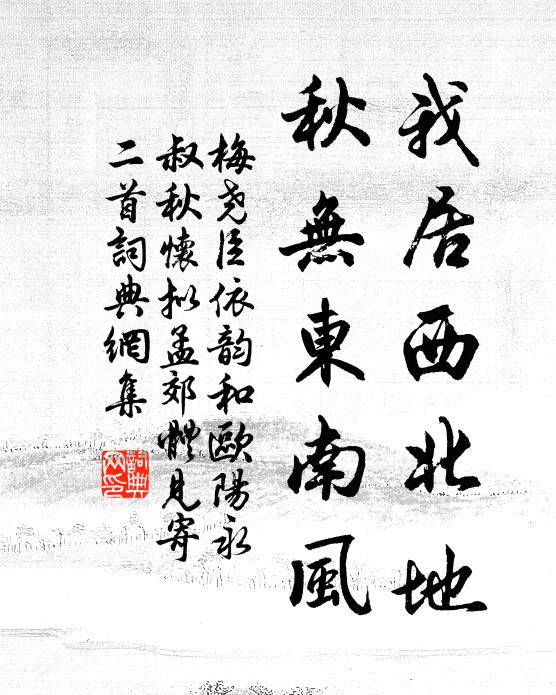 我居西北地
秋無東南風
梅尧臣依韵和歐陽永
叔秋懷拟孟郊體見寄
二首詞典網集
詞典
网印